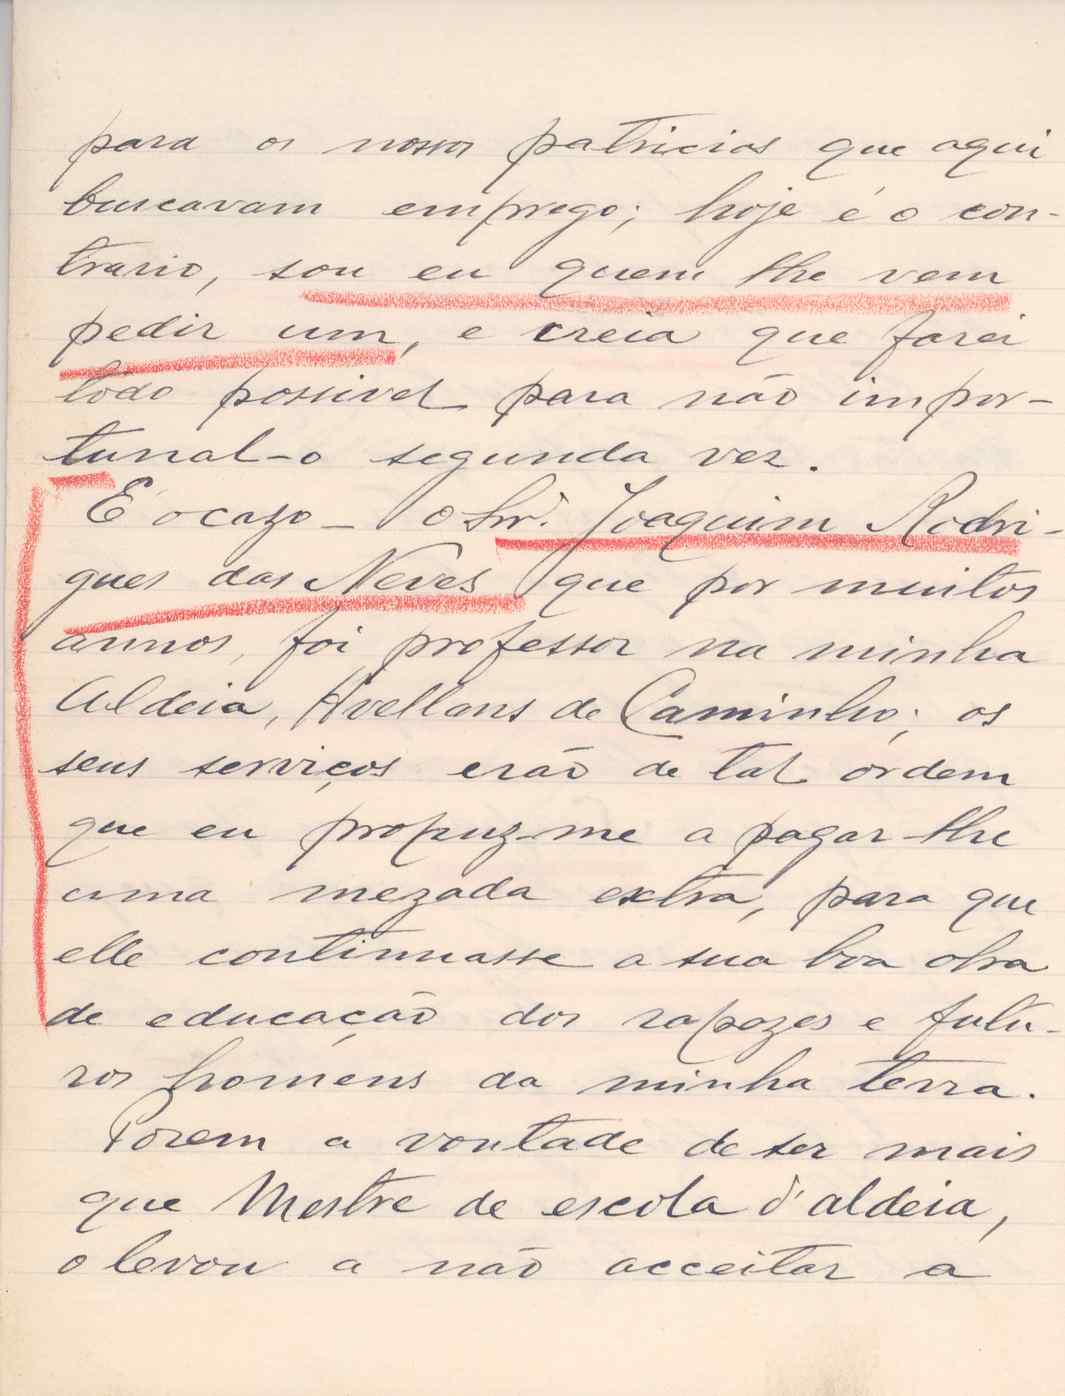 para os nossos patricios que aqui
buscavam emprego; hoje é o con-
trario, sou eu quem lhe vem
pedir um, e creia que farei
todo possivel para não impor-
tunal-o segunda vez.
É o cazo - o Snr. Joaquim Rodri-
gues das Neves que por muitos
annos, foi professor na minha
Aldeia, Avellans de Caminho; os
seus serviços erão de tal ordem
que eu propuz-me a pagar-lhe
uma mezada extra, para que
elle continuasse a sua boa obra
de educação dos rapazes e futu-
ros homens da minha terra.
Porem a vontade de ser mais
que Mestre de escola d'aldeia,
o levou a não acceitar a